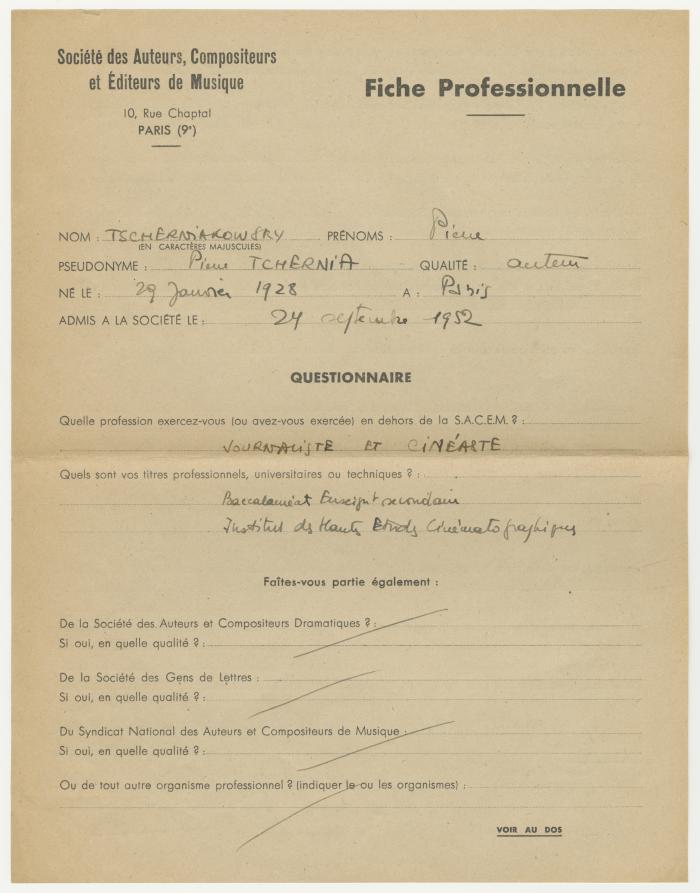 Société des Auteurs, Compositeurs
et Éditeurs de Musique
10, Rue Chaptal
PARIS (9e)
Fiche Professionnelle
NOM : TSCHERNIAKOWSKY PRÉNOMS : Pierre
(EN CARACTÈRES MAJUSCULES)
PSEUDONYME : Pierre TCHERNIA QUALITÉ : auteur
NÉ LE : 29 Janvier 1928 A : Paris
ADMIS A LA SOCIÉTÉ LE : 24 septembre 1952
QUESTIONNAIRE
Quelle profession exercez-vous (ou avez-vous exercée) en dehors de la S.A.C.E.M. ? :
JOURNALISTE ET CINÉASTE
Quels sont vos titres professionnels, universitaires ou techniques ? :
Baccalauréat Enseignt secondaire
Institut des Hautes Etudes Cinématographiques
Faîtes-vous partie également :
De la Société des Auteurs et Compositeurs Dramatiques ? :
Si oui, en quelle qualité ? :
De la Société des Gens de Lettres :
Si oui, en quelle qualité ? :
Du Syndicat National des Auteurs et Compositeurs de Musique :
Si oui, en quelle qualité ? :
Ou de tout autre organisme professionnel ? (indiquer le ou les organismes) :
VOIR AU DOS